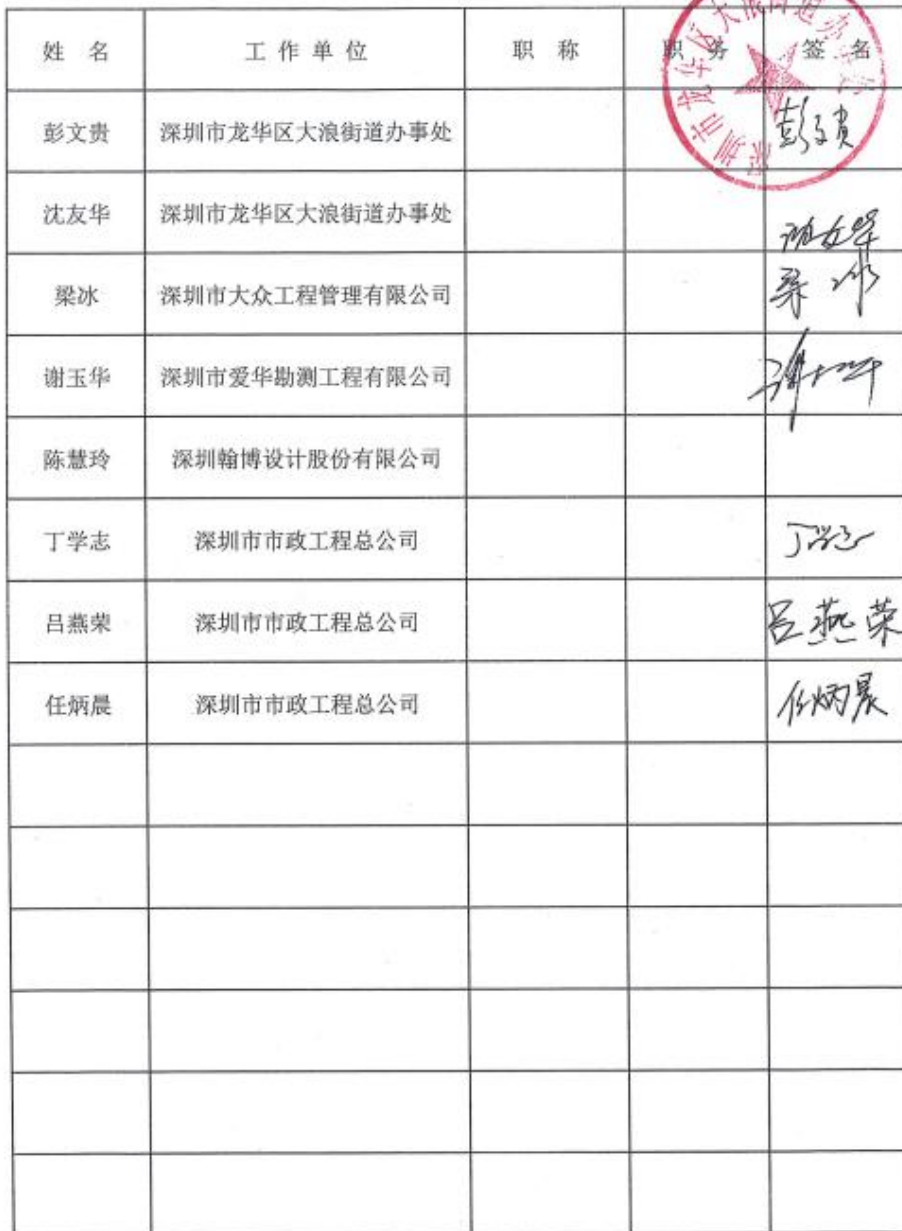 姓 名 工 作 单 位 职 称 职 务 签 名
深圳市龙华区大浪街道办事处
彭文贵 深圳市龙华区大浪街道办事处 彭文贵
沈友华 深圳市龙华区大浪街道办事处 沈友华
梁冰 深圳市大众工程管理有限公司 梁冰
谢玉华 深圳市爱华勘测工程有限公司
陈慧玲 深圳翰博设计股份有限公司
丁学志 深圳市市政工程总公司 丁学志
吕燕荣 深圳市市政工程总公司 吕燕荣
任炳晨 深圳市市政工程总公司 任炳晨